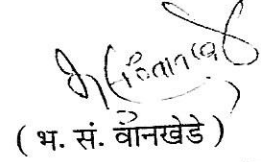 ( भ. सं. वानखेडे )